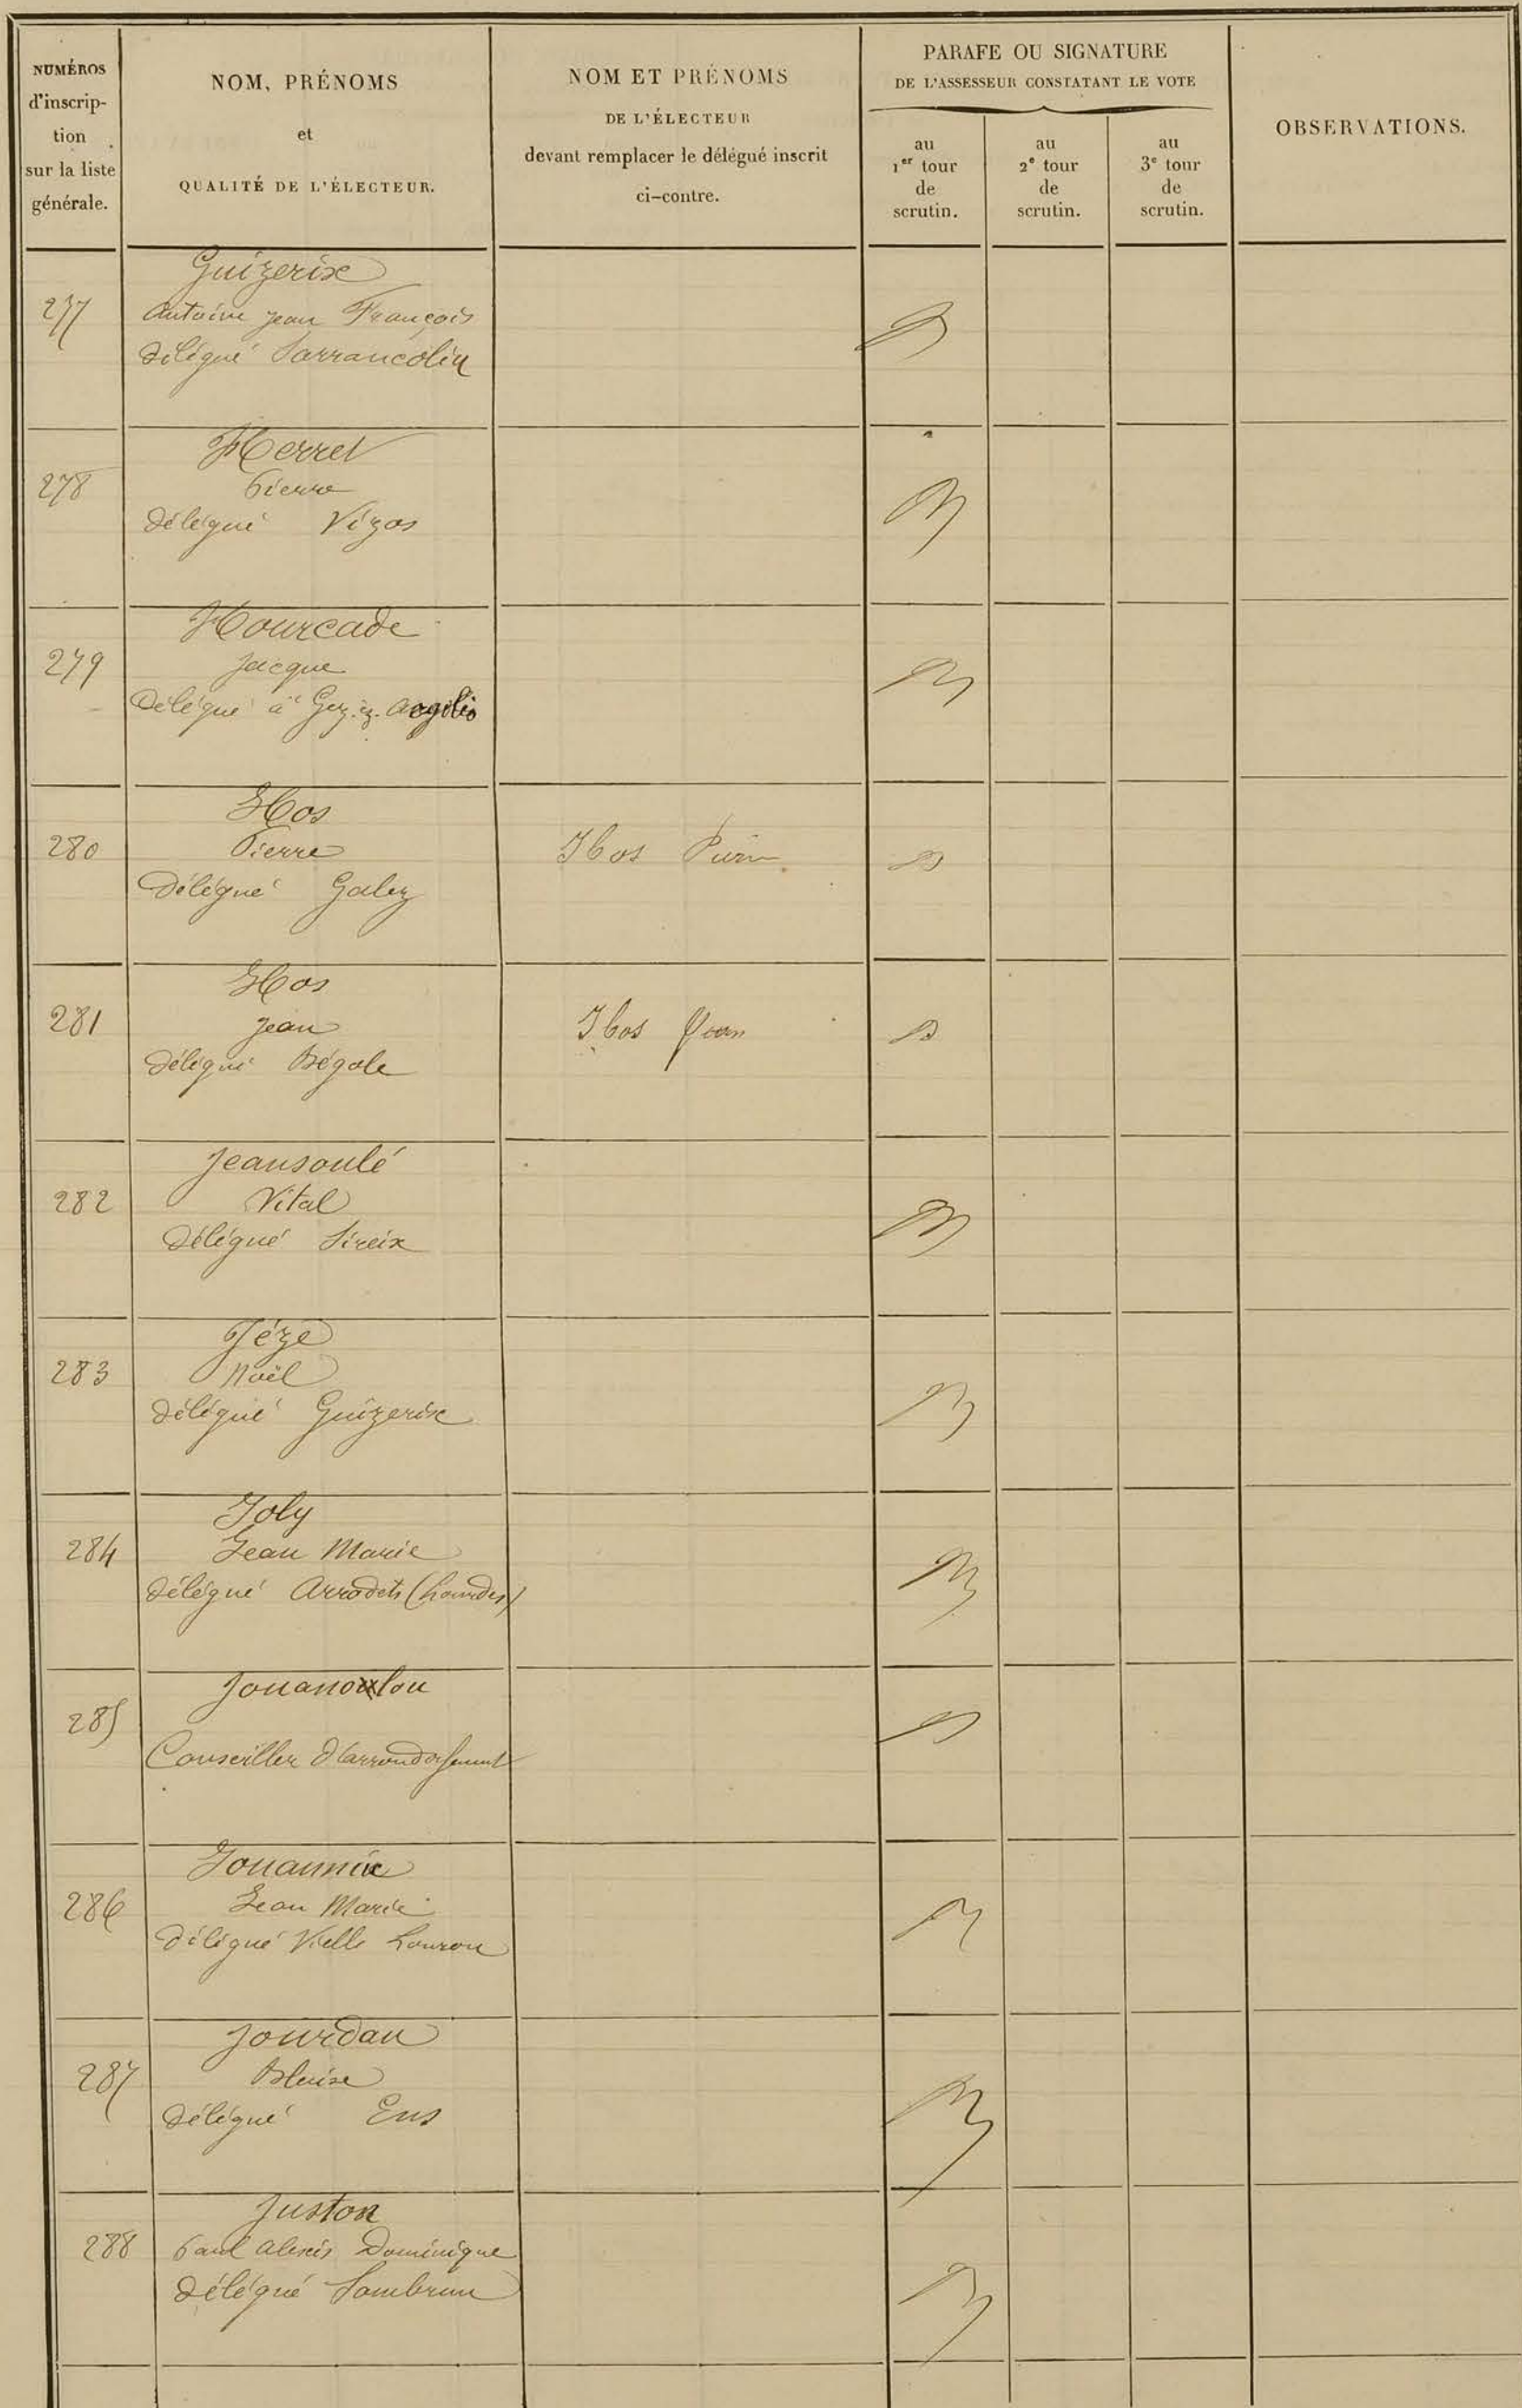 NUMÉROS
d'inscrip-
tion
sur la liste
générale.
NOM, PRÉNOMS
et
QUALITÉ DE L'ÉLECTEUR.
NOM ET PRÉNOMS
DE L'ÉLECTEUR
devant remplacer le délégué inscrit
ci-contre.
PARAFE OU SIGNATURE
DE L'ASSESSEUR CONSTATANT LE VOTE
au
1er tour
de
scrutin.
au
2e tour
de
scrutin.
au
3e tour
de
scrutin.
OBSERVATIONS.
Guizerix
277
Antoine Jean François
Délégué Sarrancolin
Herret
278
Pierre
Délégué Vizos
Hourcade
279
Jacque
Délégué à Gez. ez. Argelès
Ibos
280
Pierre
Ibos Pierre
Délégué Galez
Ibos
281
Jean
Ibos Jean
Délégué Bégole
Jeansoulé
282
Vital
Délégué Sireix
Jéze
283
Noël
Délégué Guizerix
Joly
284
Jean Marie
Délégué Arrodets (Lourdes)
Jouanolou
285
Conseiller d'arrondissement
286
Jean Marie
Délégué Vielle Louron
Jourdan
287
Blaise
Délégué Ens
Juston
288
Paul Alexis Dominique
Délégué Sombrun